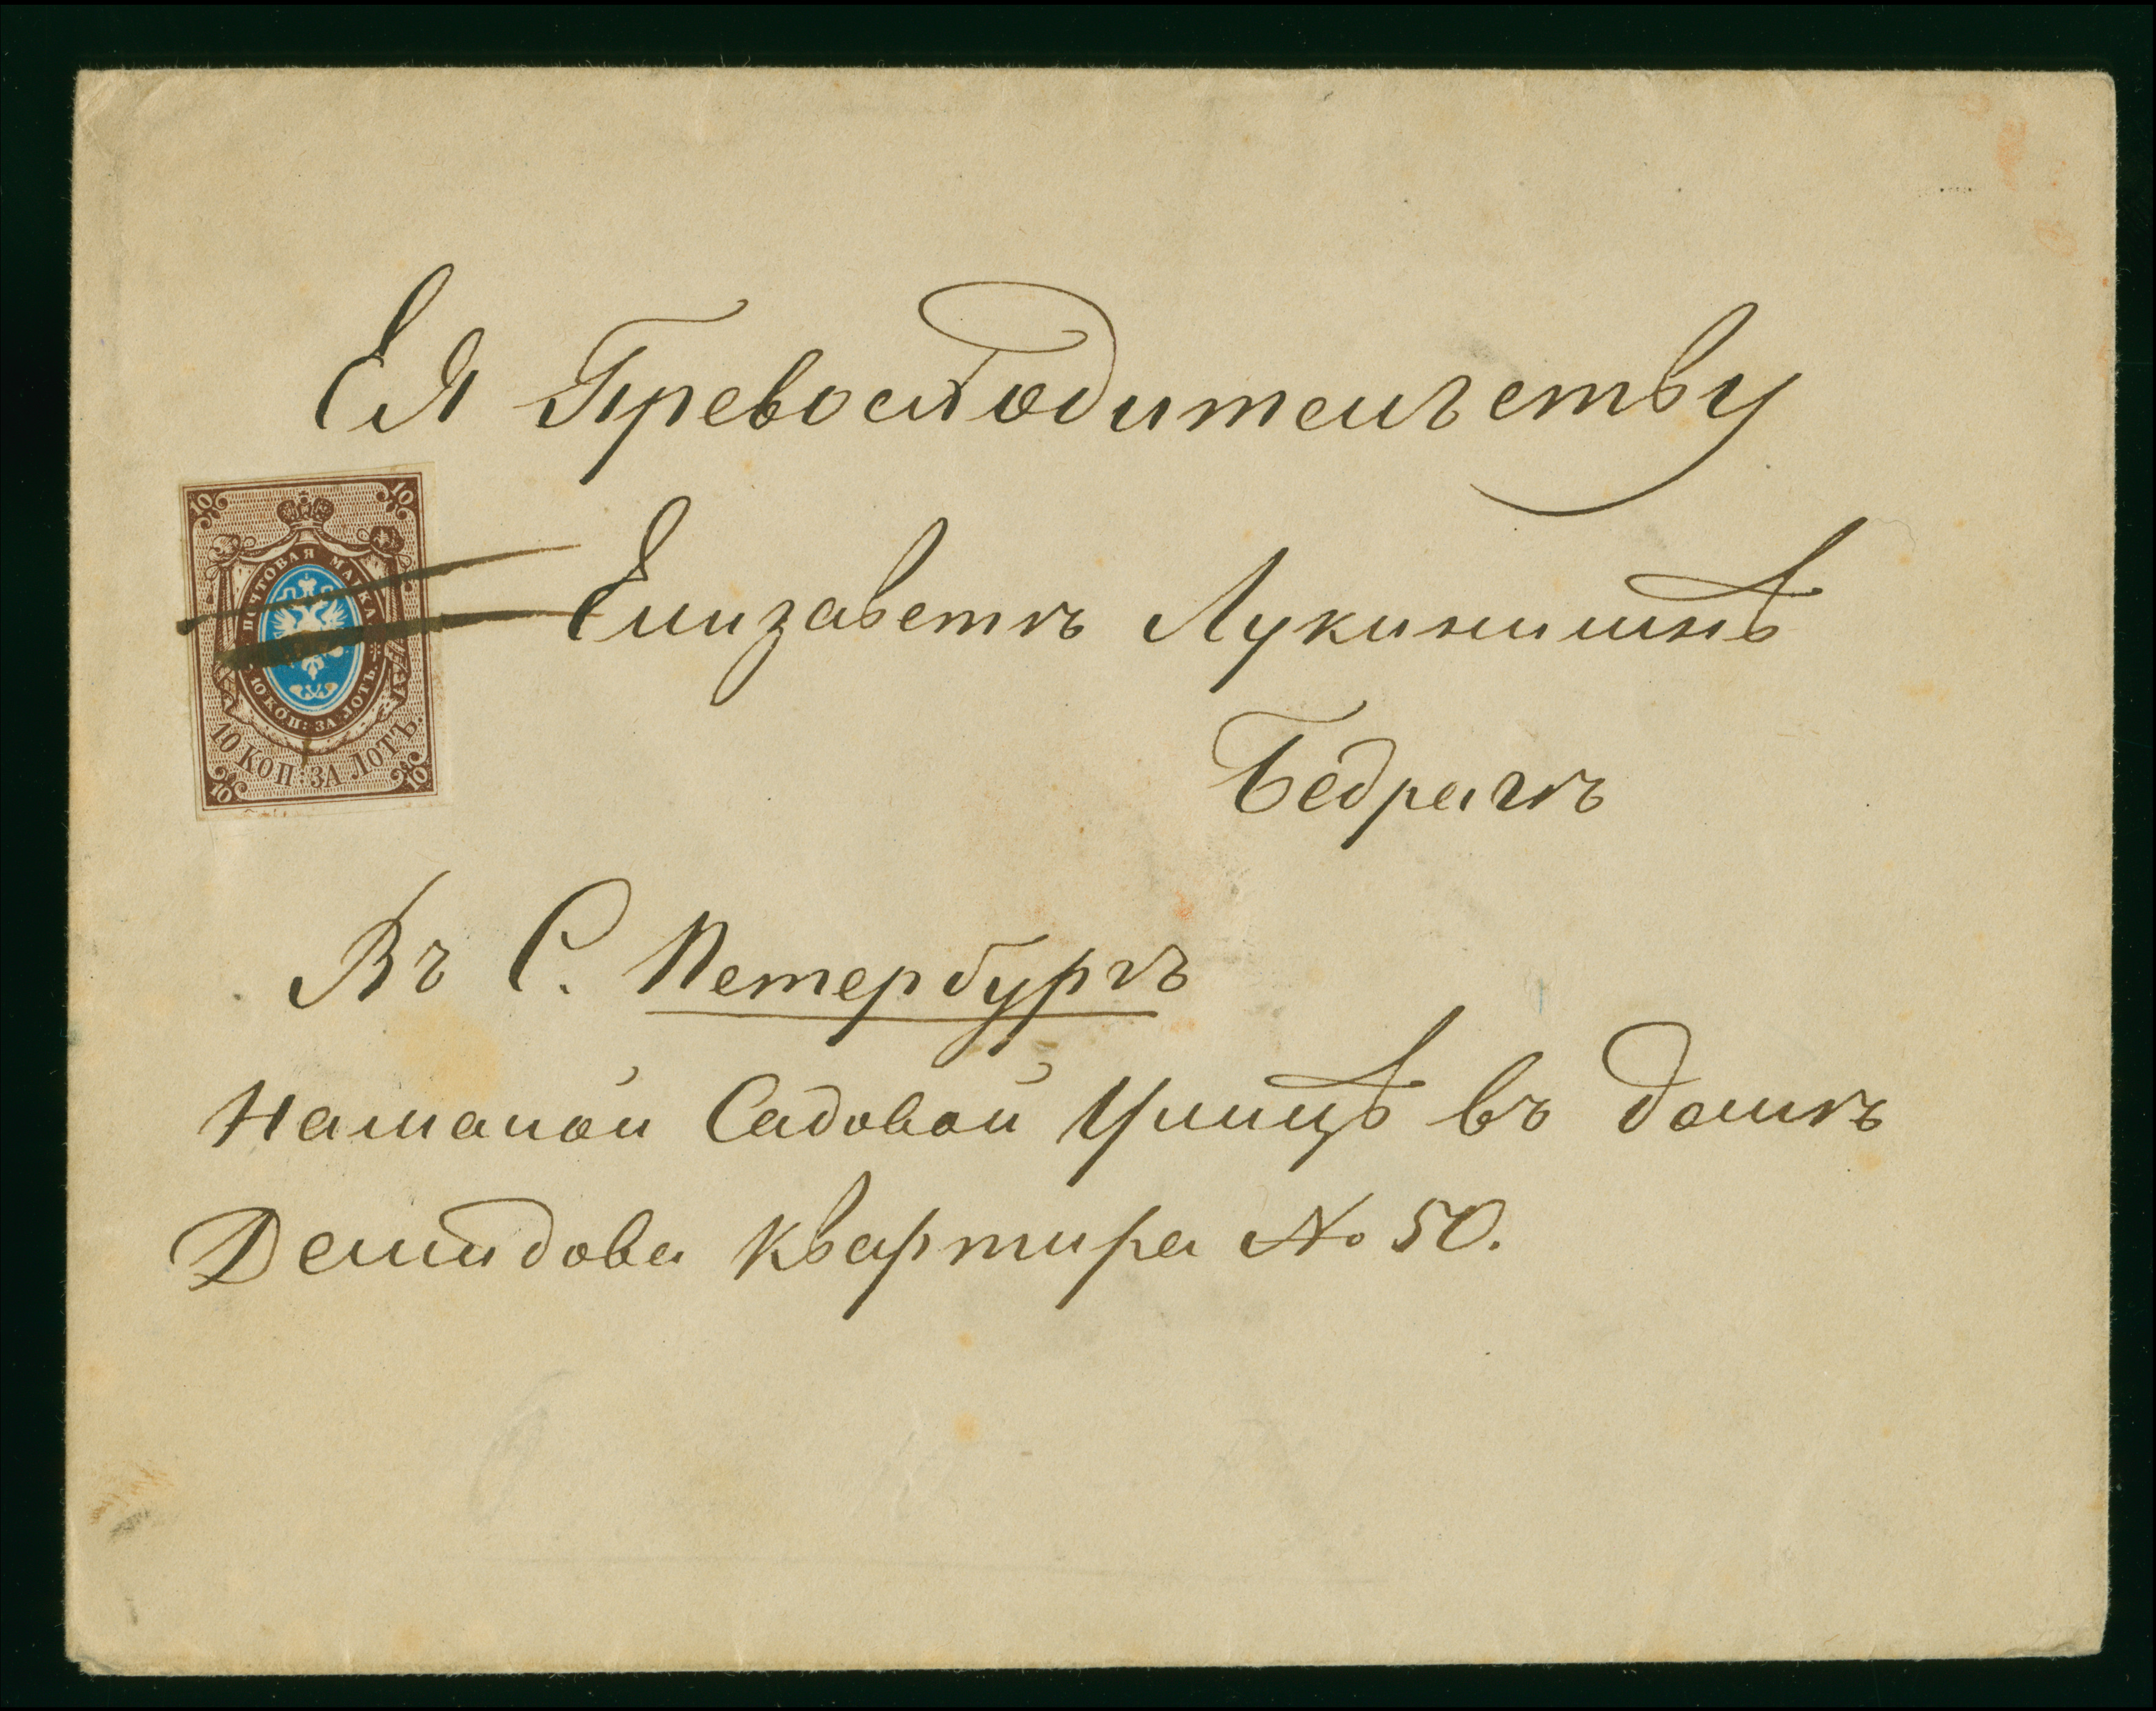 Ея Превосходительству
Елизаветѣ Лукинишнѣ
Бедрягѣ
Въ С. Петербургъ
На малой Садовой Улицѣ въ домѣ
Демидова квартира № 50.
10 10
ПОЧТОВАЯ МАРКА
10 КОП: ЗА ЛОТЪ.
10 КОП: ЗА ЛОТЪ.
10 10